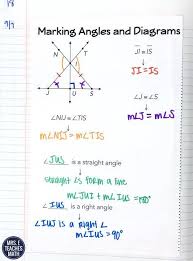 Marking Angles and Diagrams
N T
J U S
JI ≅ IS
JI = IS
∠J ≅ ∠S
m∠J = m∠S
∠NIJ ≅ ∠TIS
m∠NIJ = m∠TIS
∠JUS is a straight angle
Straight ∠s form a line
m∠JUI + m∠IUS = 180°
∠IUS is a right angle
∠IUJ is a right ∠
m∠IUS = 90°
MRS. E
TEACHES
MATH